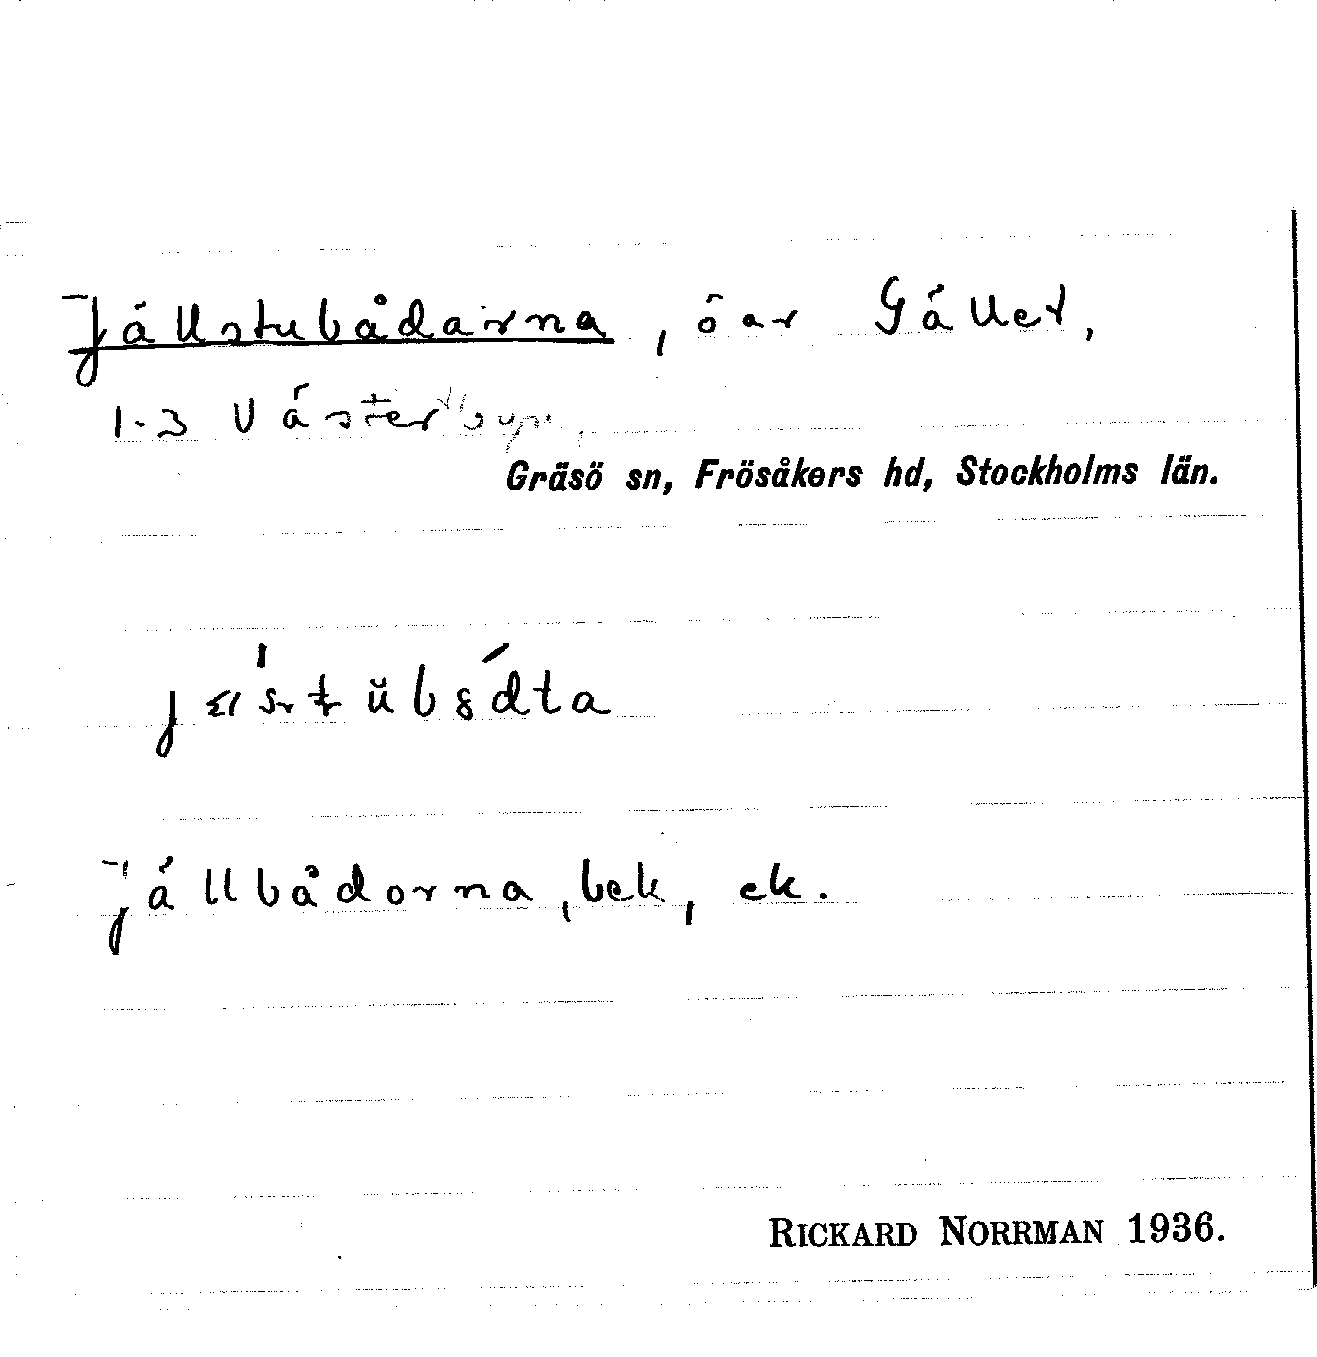 Jällstubådarna, öar Gället,
1-3 Västerbyn,
Gräsö sn, Frösåkers hd, Stockholms län.
Jällbådorna, bek, ek.
RICKARD NORRMAN 1936.